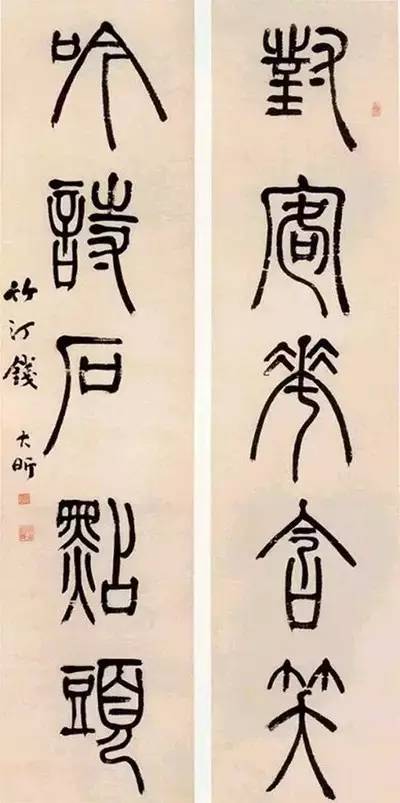 對客花含笑
吟詩石點頭
竹汀錢大昕